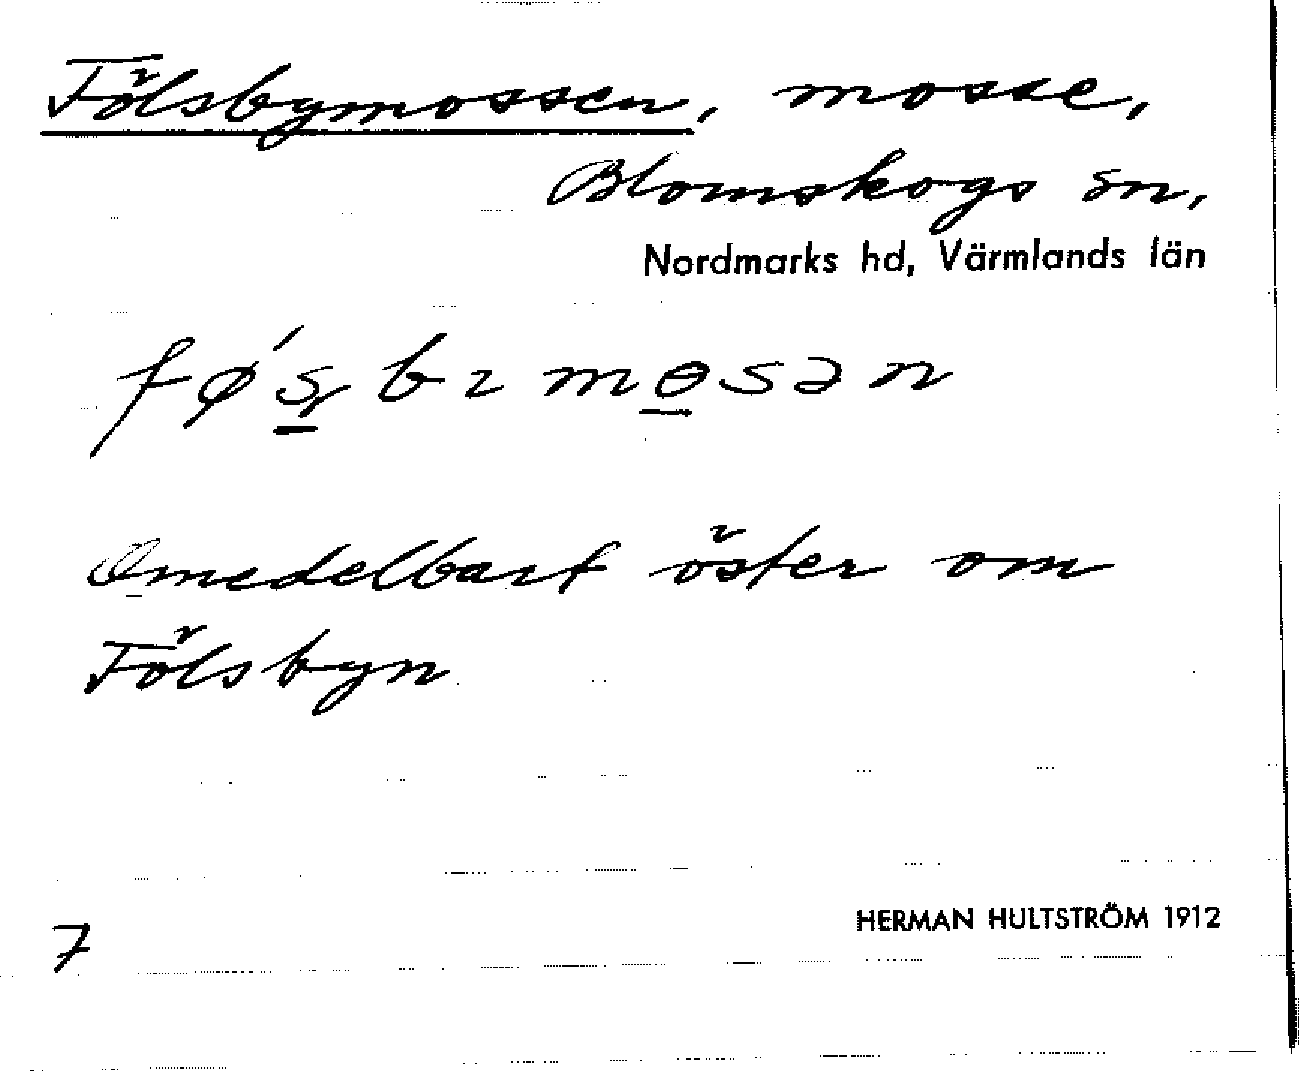 Fölsbymossen, mosse,
Blomskogs sn,
Nordmarks hd, Värmlands län
fø´ʂbɪmɵsən
Omedelbart öster om
Fölsbyn
HERMAN HULTSTRÖM 1912
7